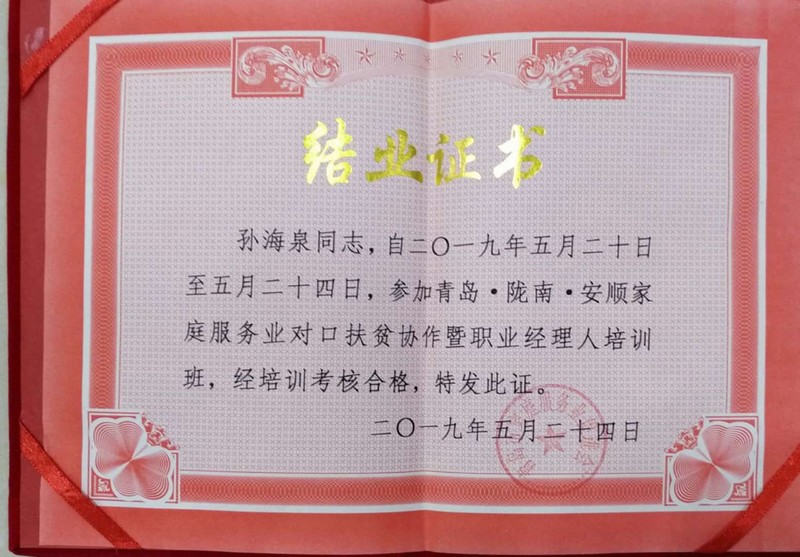 结业证书
孙海泉同志，自二〇一九年五月二十日
至五月二十四日，参加青岛·陇南·安顺家
庭服务业对口扶贫协作暨职业经理人培训
班，经培训考核合格，特发此证。
二〇一九年五月二十四日